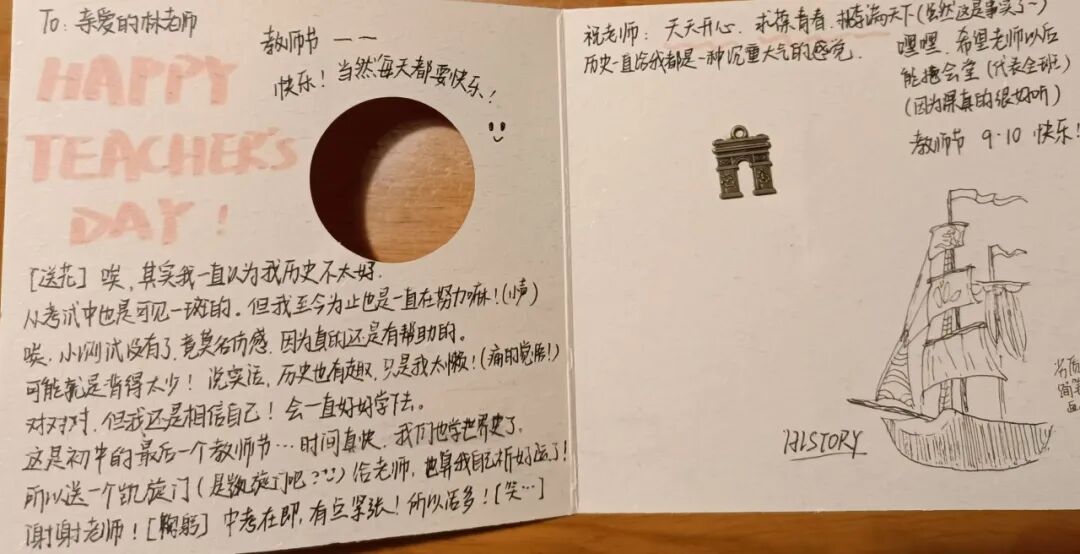 To: 亲爱的林老师
HAPPY
TEACHER'S
DAY!
教师节——
快乐! 当然每天都要快乐!
[送花] 唉,其实我一直认为我历史不太好.
从考试中也是可见一斑的。但我至今为止也是一直在努力嘛!(小声)
唉,小测试没有了,竟莫名伤感,因为真的还是有帮助的。
可能就是背得太少! 说实话,历史也有趣,只是我太懒!(痛的觉悟!)
对对对,但我还是相信自己! 会一直好好学下去。
这是初中的最后一个教师节…时间真快,我们也学世界史了,
所以送一个凯旋门(是凯旋门吧???)给老师,也算我自己祈好运了!
谢谢老师![鞠躬] 中考在即,有点紧张! 所以话多![笑…]
祝老师: 天天开心、青春、桃李满天下(虽然这是事实了~)
历史一直给我都是一种沉重大气的感觉.
嘿嘿,希望老师以后
能拖会堂(代表全班)
(因为课真的很好听)
教师节 9·10 快乐!
HISTORY
简笔
画